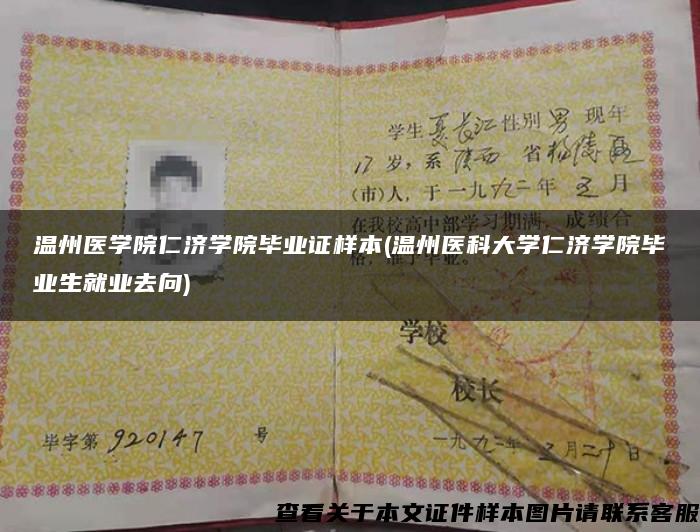 学生夏长江性别男 现年
17岁，系陕西 省杨陵区
(市)人，于一九九二年 五月
在我校高中部学习期满，成绩合
温州医学院仁济学院毕业证样本(温州医科大学仁济学院毕
业生就业去向)
学校
校长
毕字第 920147 号
一九九二年 五月二十日
查看关于本文证件样本图片请联系客服